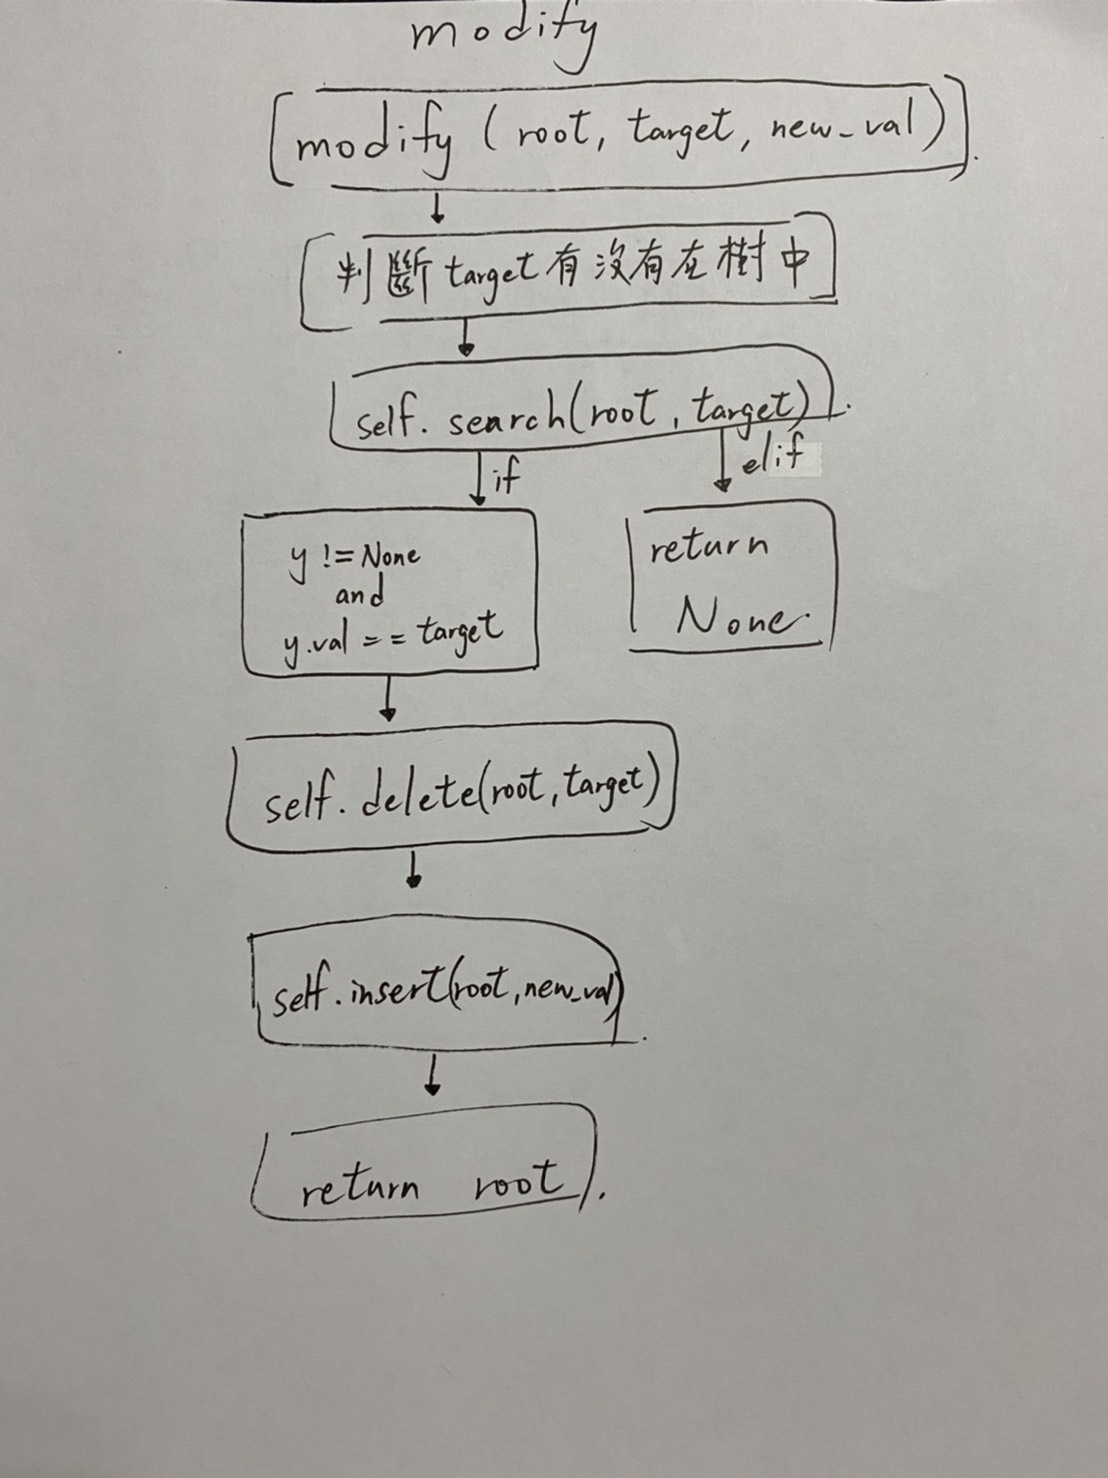 modify
modify (root, target, new_val)
判斷target有沒有在樹中
self. search(root, target)
if
elif
y != None
and
y.val == target
return
None
self. delete(root, target)
self. insert(root, new_val)
return root